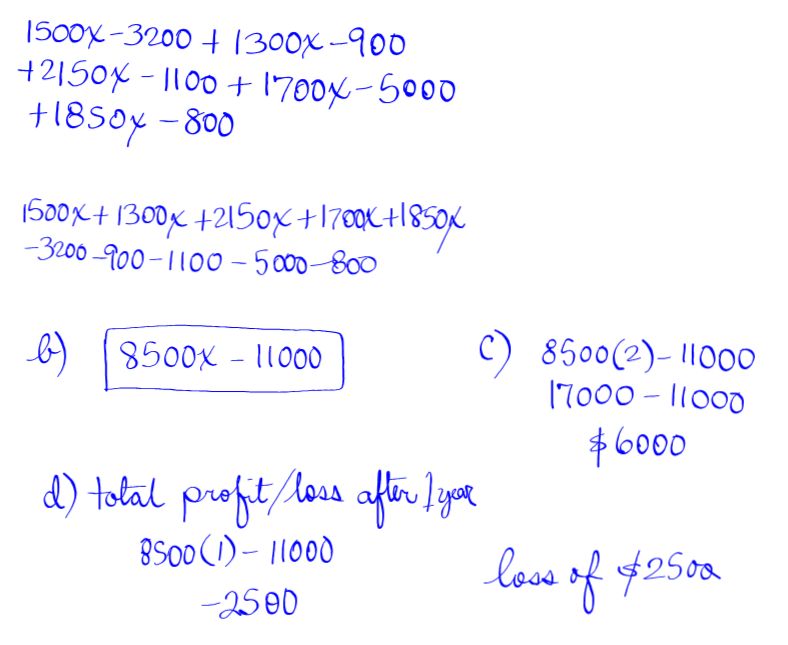 1500x - 3200 + 1300x - 900
+2150x - 1100 + 1700x - 5000
+1850x - 800
1500x + 1300x + 2150x + 1700x + 1850x
-3200 - 900 - 1100 - 5000 - 800
b) 8500x - 11000
c) 8500(2) - 11000
17000 - 11000
$6000
d) total profit/loss after 1 year
8500(1) - 11000
-2500
loss of $2500